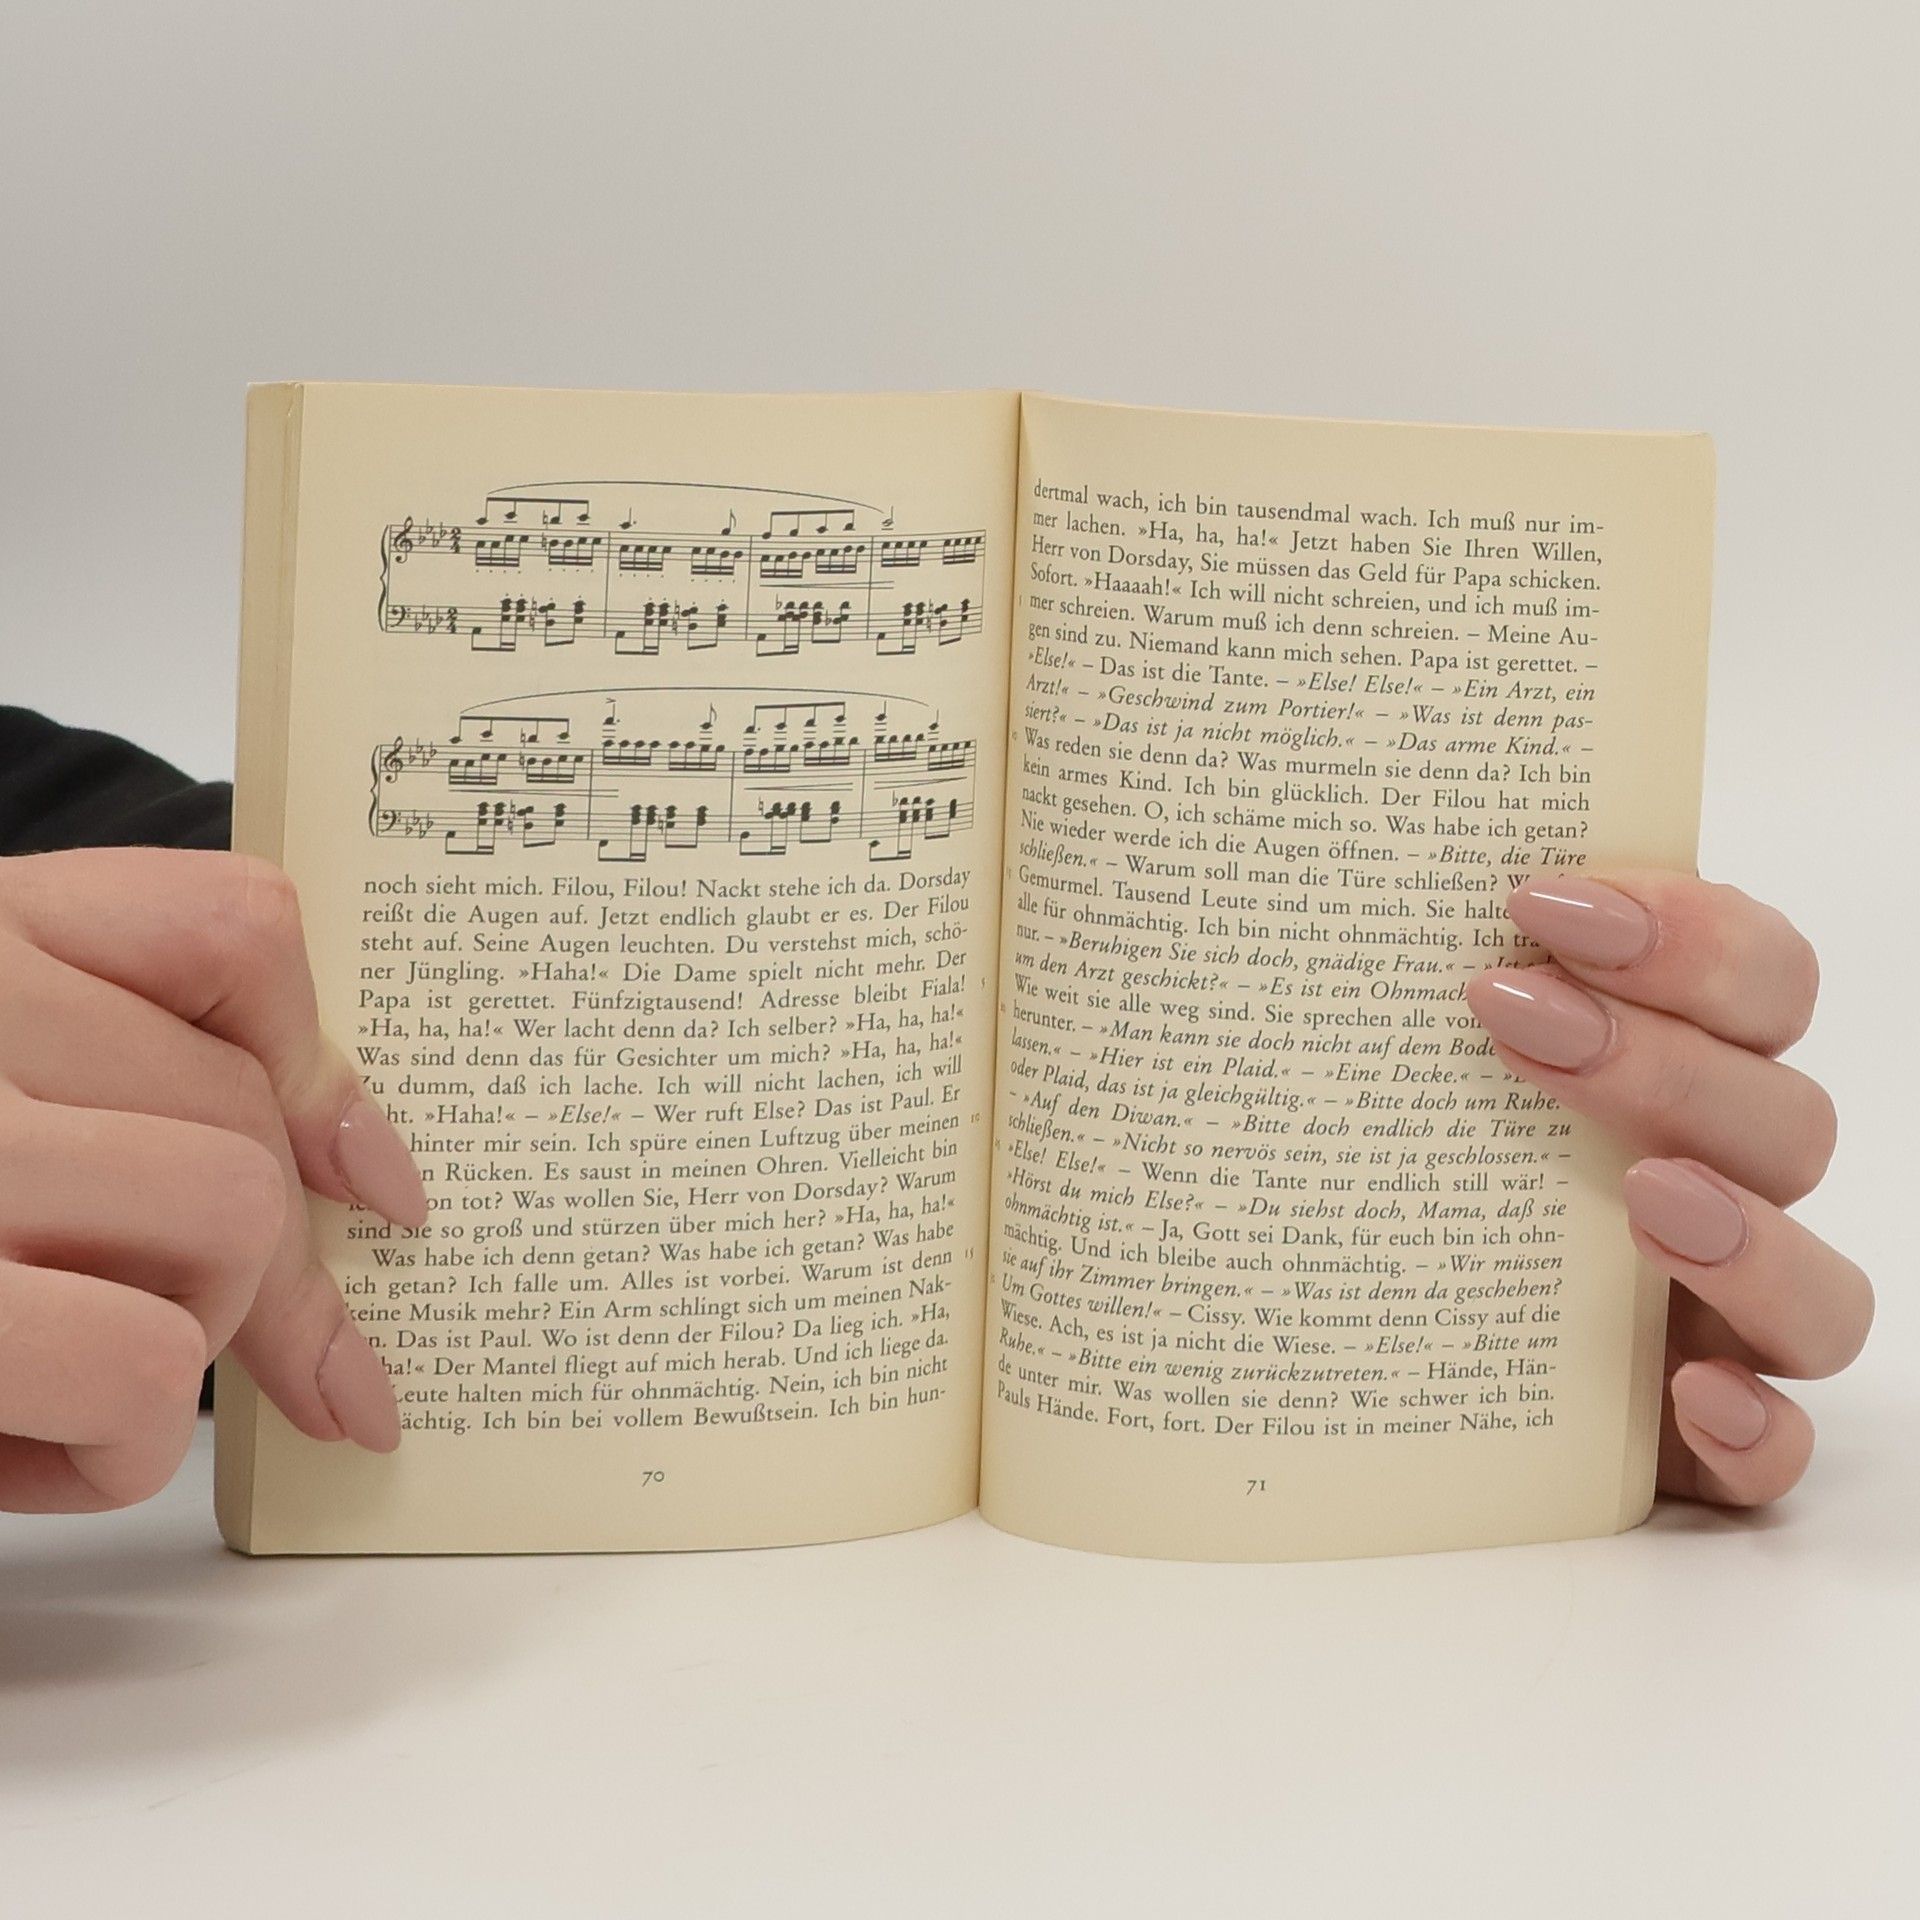 noch sieht mich. Filou, Filou! Nackt stehe ich da. Dorsday
reißt die Augen auf. Jetzt endlich glaubt er es. Der Filou
steht auf. Seine Augen leuchten. Du verstehst mich, schö-
ner Jüngling. »Haha!« Die Dame spielt nicht mehr. Der
Papa ist gerettet. Fünfzigtausend! Adresse bleibt Fiala!
»Ha, ha, ha!« Wer lacht denn da? Ich selber? »Ha, ha, ha!«
Was sind denn das für Gesichter um mich? »Ha, ha, ha!«
Zu dumm, daß ich lache. Ich will nicht lachen, ich will
»Haha!« – »Else!« – Wer ruft Else? Das ist Paul. Er
hinter mir sein. Ich spüre einen Luftzug über meinen
Rücken. Es saust in meinen Ohren. Vielleicht bin
tot? Was wollen Sie, Herr von Dorsday? Warum
sind Sie so groß und stürzen über mich her? »Ha, ha, ha!«
Was habe ich denn getan? Was habe ich getan? Was habe
ich getan? Ich falle um. Alles ist vorbei. Warum ist denn
keine Musik mehr? Ein Arm schlingt sich um meinen Nak-
Das ist Paul. Wo ist denn der Filou? Da lieg ich. »Ha,
ha!« Der Mantel fliegt auf mich herab. Und ich liege da.
Leute halten mich für ohnmächtig. Nein, ich bin nicht
Ich bin bei vollem Bewußtsein. Ich bin hun-
70
dertmal wach, ich bin tausendmal wach. Ich muß nur im-
mer lachen. »Ha, ha, ha!« Jetzt haben Sie Ihren Willen,
Herr von Dorsday, Sie müssen das Geld für Papa schicken.
Sofort. »Haaaah!« Ich will nicht schreien, und ich muß im-
mer schreien. Warum muß ich denn schreien. – Meine Au-
gen sind zu. Niemand kann mich sehen. Papa ist gerettet. –
»Else!« – Das ist die Tante. – »Else! Else!« – »Ein Arzt, ein
Arzt!« – »Geschwind zum Portier!« – »Was ist denn pas-
siert?« – »Das ist ja nicht möglich.« – »Das arme Kind.« –
Was reden sie denn da? Was murmeln sie denn da? Ich bin
kein armes Kind. Ich bin glücklich. Der Filou hat mich
nackt gesehen. O, ich schäme mich so. Was habe ich getan?
Nie wieder werde ich die Augen öffnen. – »Bitte, die Türe
schließen.« – Warum soll man die Türe schließen?
Gemurmel. Tausend Leute sind um mich. Sie
alle für ohnmächtig. Ich bin nicht ohnmächtig. Ich
nur. – »Beruhigen Sie sich doch, gnädige Frau.« –
um den Arzt geschickt?« – »Es ist ein
Wie weit sie alle weg sind. Sie sprechen alle
herunter. – »Man kann sie doch nicht auf dem
lassen.« – »Hier ist ein Plaid.« – »Eine Decke.« –
oder Plaid, das ist ja gleichgültig.« – »Bitte doch um Ruhe.
– »Auf den Diwan.« – »Bitte doch endlich die Türe zu
schließen.« – »Nicht so nervös sein, sie ist ja geschlossen.« –
»Else! Else!« – Wenn die Tante nur endlich still wär! –
»Hörst du mich Else?« – »Du siehst doch, Mama, daß sie
ohnmächtig ist.« – Ja, Gott sei Dank, für euch bin ich ohn-
mächtig. Und ich bleibe auch ohnmächtig. – »Wir müssen
sie auf ihr Zimmer bringen.« – »Was ist denn da geschehen?
Um Gottes willen!« – Cissy. Wie kommt denn Cissy auf die
Wiese. Ach, es ist ja nicht die Wiese. – »Else!« – »Bitte um
Ruhe.« – »Bitte ein wenig zurückzutreten.« – Hände, Hän-
de unter mir. Was wollen sie denn? Wie schwer ich bin.
Pauls Hände. Fort, fort. Der Filou ist in meiner Nähe, ich
71